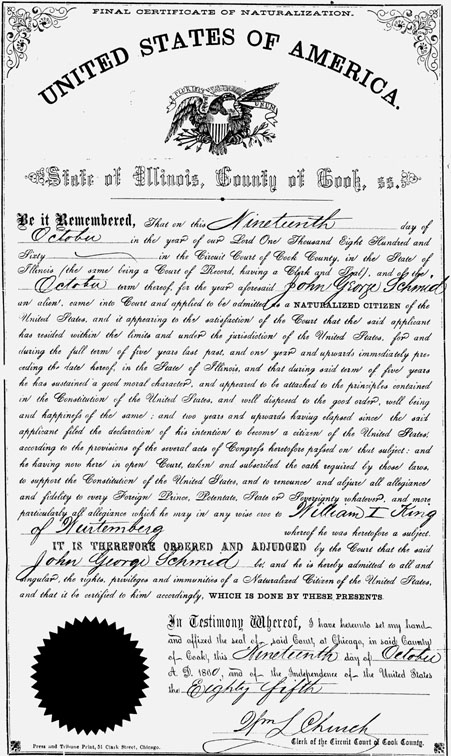 FINAL CERTIFICATE OF NATURALIZATION.
UNITED STATES OF AMERICA.
E PLURIBUS UNUM
State of Illinois, County of Cook, ss.
Be it Remembered, That on this Nineteenth day of
October in the year of our Lord One Thousand Eight Hundred and
Sixty in the Circuit Court of Cook County, in the State of
Illinois (the same being a Court of Record, having a Clerk and Seal), and of the
October term thereof, for the year aforesaid John George Schmid
an alien, came into Court and applied to be admitted as a NATURALIZED CITIZEN OF the
United States, and it appearing to the satisfaction of the Court that the said applicant
has resided within the limits and under the jurisdiction of the United States, for and
during the full term of five years last past, and one year and upwards immediately pre-
ceding the date hereof, in the State of Illinois, and that during said term of five years
he has sustained a good moral character, and appeared to be attached to the principles contained
in the Constitution of the United States, and well disposed to the good order, well being
and happiness of the same; and two years and upwards having elapsed since the said
applicant filed the declaration of his intention to become a citizen of the United States,
according to the provisions of the several acts of Congress heretofore passed on that subject: and
he having now here in open Court, taken and subscribed the oath required by those laws,
to support the Constitution of the United States, and to renounce and abjure all allegiance
and fidelity to every Foreign Prince, Potentate, State or Sovereignty whatever, and more
particularly all allegiance which he may in any wise owe to William I King
of Wurtemberg whereof he was heretofore a subject.
IT IS THEREFORE ORDERED AND ADJUDGED by the Court that the said
John George Schmid be, and he is hereby admitted to all and
singular, the rights, privileges and immunities of a Naturalized Citizen of the United States,
and that it be certified to him accordingly, WHICH IS DONE BY THESE PRESENTS.
In Testimony Whereof, I have hereunto set my hand
and affixed the seal of said Court, at Chicago, in said County
of Cook, this Nineteenth day of October
A. D. 1860, and of the Independence of the United States
the Eighty fifth
Wm L Church
Clerk of the Circuit Court of Cook County.
Press and Tribune Print, 51 Clark Street, Chicago.